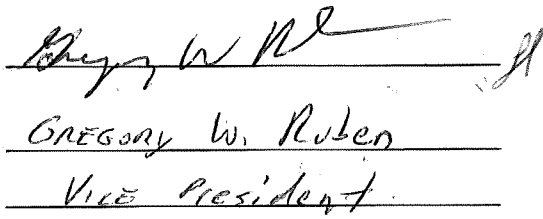 Gregory W R
GREGORY W. Ruben
Vice President